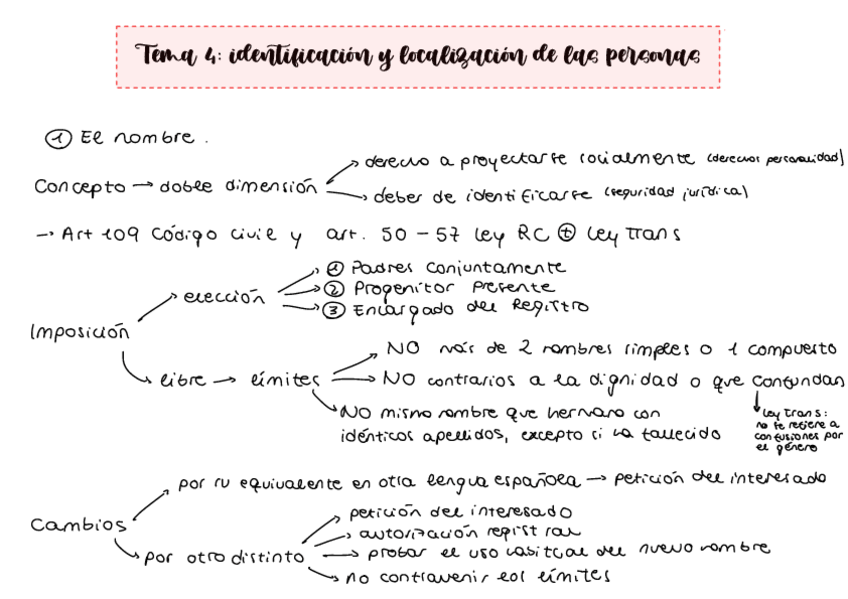 Tema 4: identificación y localización de las personas
① El nombre.
Concepto → doble dimensión
→ derecho a proyectarse socialmente (derechos personalidad)
→ deber de identificarse (seguridad jurídica)
→ Art 109 Código civil y art. 50 - 57 Ley RC ⊕ Ley trans
Imposición
→ elección
→ ① Padres conjuntamente
→ ② Progenitor presente
→ ③ Encargado del Registro
→ libre → límites
→ NO más de 2 nombres simples o 1 compuesto
→ NO contrarios a la dignidad o que confundan
↓ Ley trans:
no se refiere a
confusiones por
el género
→ NO mismo nombre que hermano con
idénticos apellidos, excepto si ha fallecido
Cambios
→ por su equivalente en otra lengua española → petición del interesado
→ por otro distinto
→ petición del interesado
→ autorización registral
→ probar el uso habitual del nuevo nombre
→ no contravenir los límites